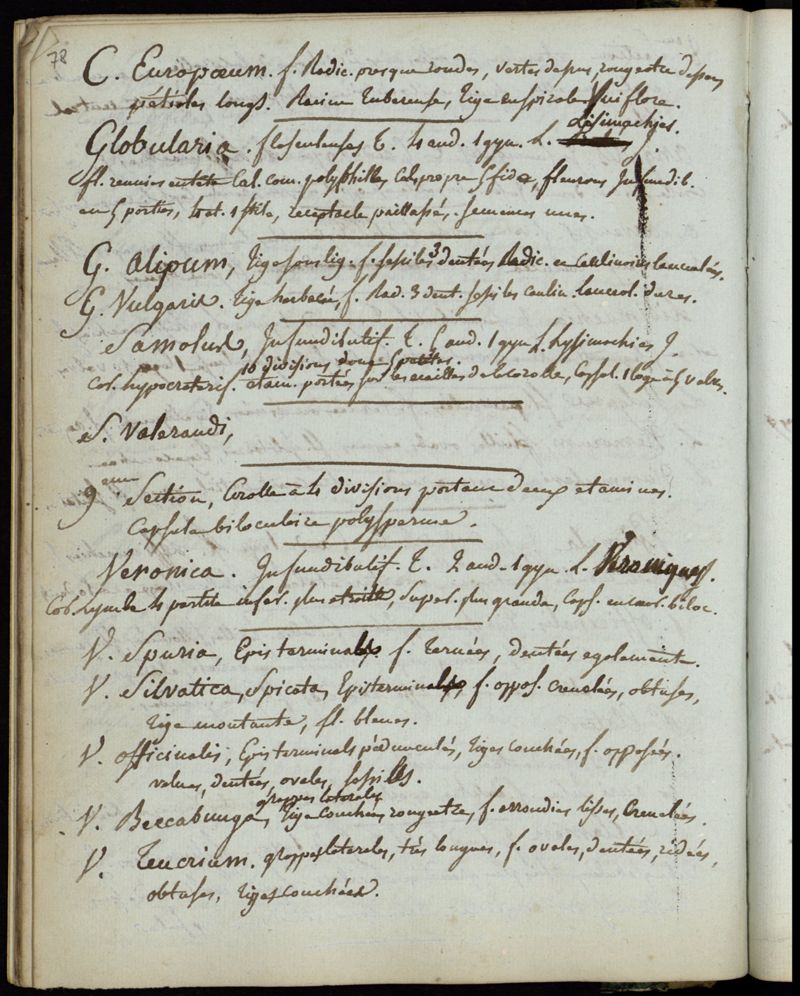 78
C. Europœum. f. Radic. presque rondes, vertes depus, rougeatre desous
pétioles longs. Racine tubereuse, tige en spirale uniflore.
Globularia. flosculeuses T. 4 and. 1 gyn. L. Lisimachies J.
fl. reunies en tete Cal. com. polyphille Cal. propre 5 fide, fleurons Infundib.
en 5 parties, 4 et. 1 stile, receptacle paillassés. semences nues.
G. Alipum, tige sous lig. f. sessiles 3 dentées Radic. en caulinaires lanceolés.
G. Vulgaris. tige herbacée, f. Rad. 3 dent. sessiles caulin. lanceol. dures.
Samolus, Infundibulif. T. 5 and. 1 gyn L. Lysimachies J.
10 divisions dont 5 petites.
Cor. hypocraterif. etam. portées sur les ecailles de la corolle, Capsul. 1 loge à 5 valves.
S. Valerandi,
9 eme Section, Corolle à 4 divisions portant deux etamines.
Capsule biloculaire polysperme.
Veronica. Infundibulif. T. 2 and. 1 gyn. L. Veroniques J.
Cor. Lymbe 4 partite infer. plus etroite, super. plus grande, Caps. en coeur. biloc.
V. Spuria, Epis terminals f. ternées, dentées egalemente.
V. Silvatica, Spicata, Epis terminals, f. oppos. crenelées, obtuses,
tige montante, fl. bleues.
V. officinalis, Epis terminals pédunculés, tiges couchées, f. opposées.
velues, dentées, ovales, sessiles.
V. Beccabunga, grappes laterales tige couchée rougeatre, f. arrondies lisses, Crenelées.
V. Teucrium. grappes laterales, très longues, f. ovales, dentées, ridées,
obtuses, tiges couchées.